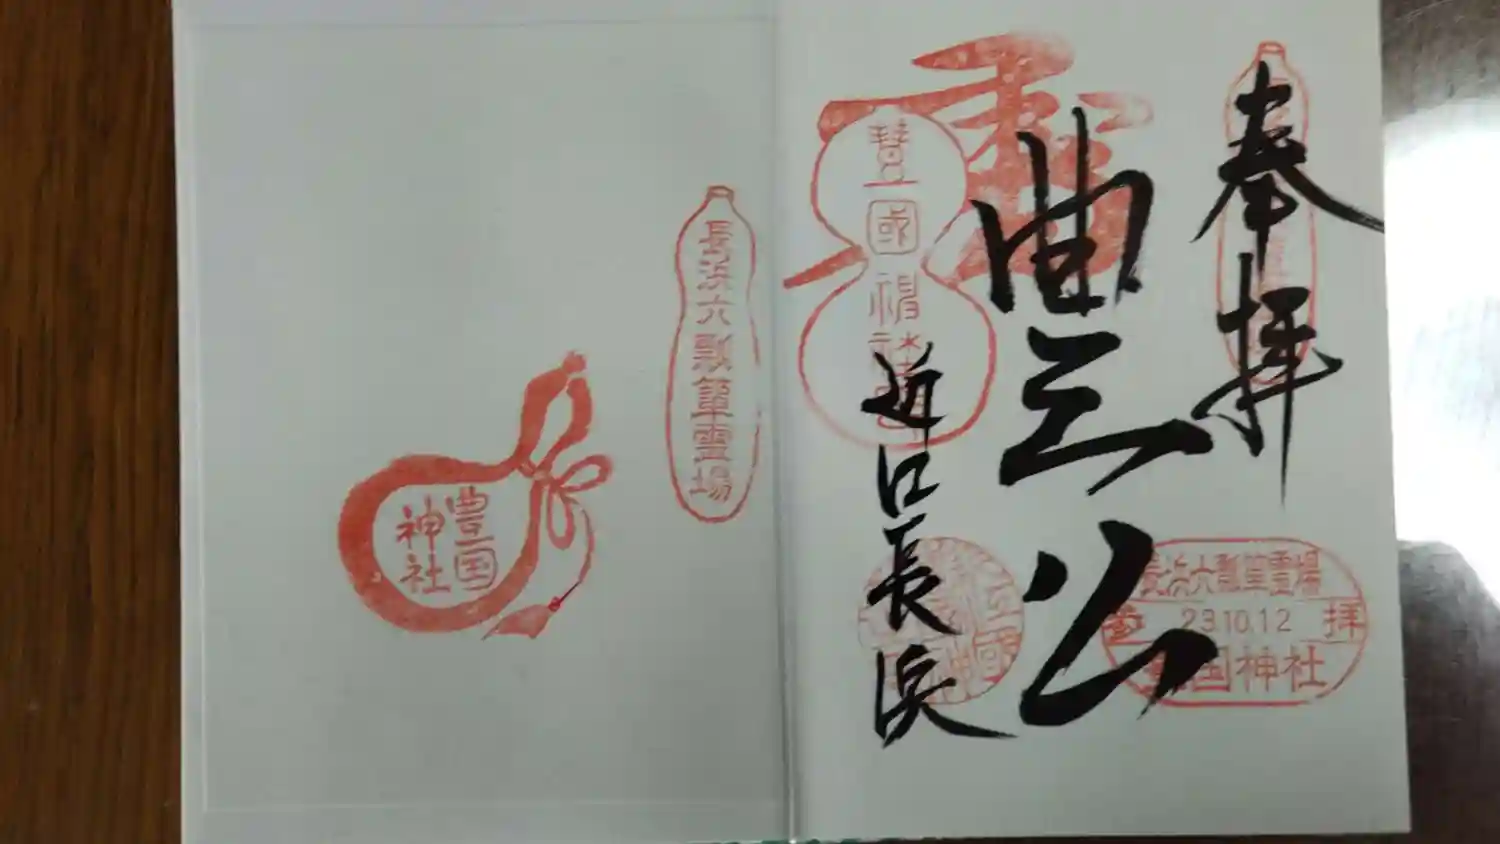 奉拝
豊公
近江長浜
豐國神
長浜六瓢箪霊場
23.10.12
参拝
豊国神社
長浜六瓢箪霊場
豊国
神社